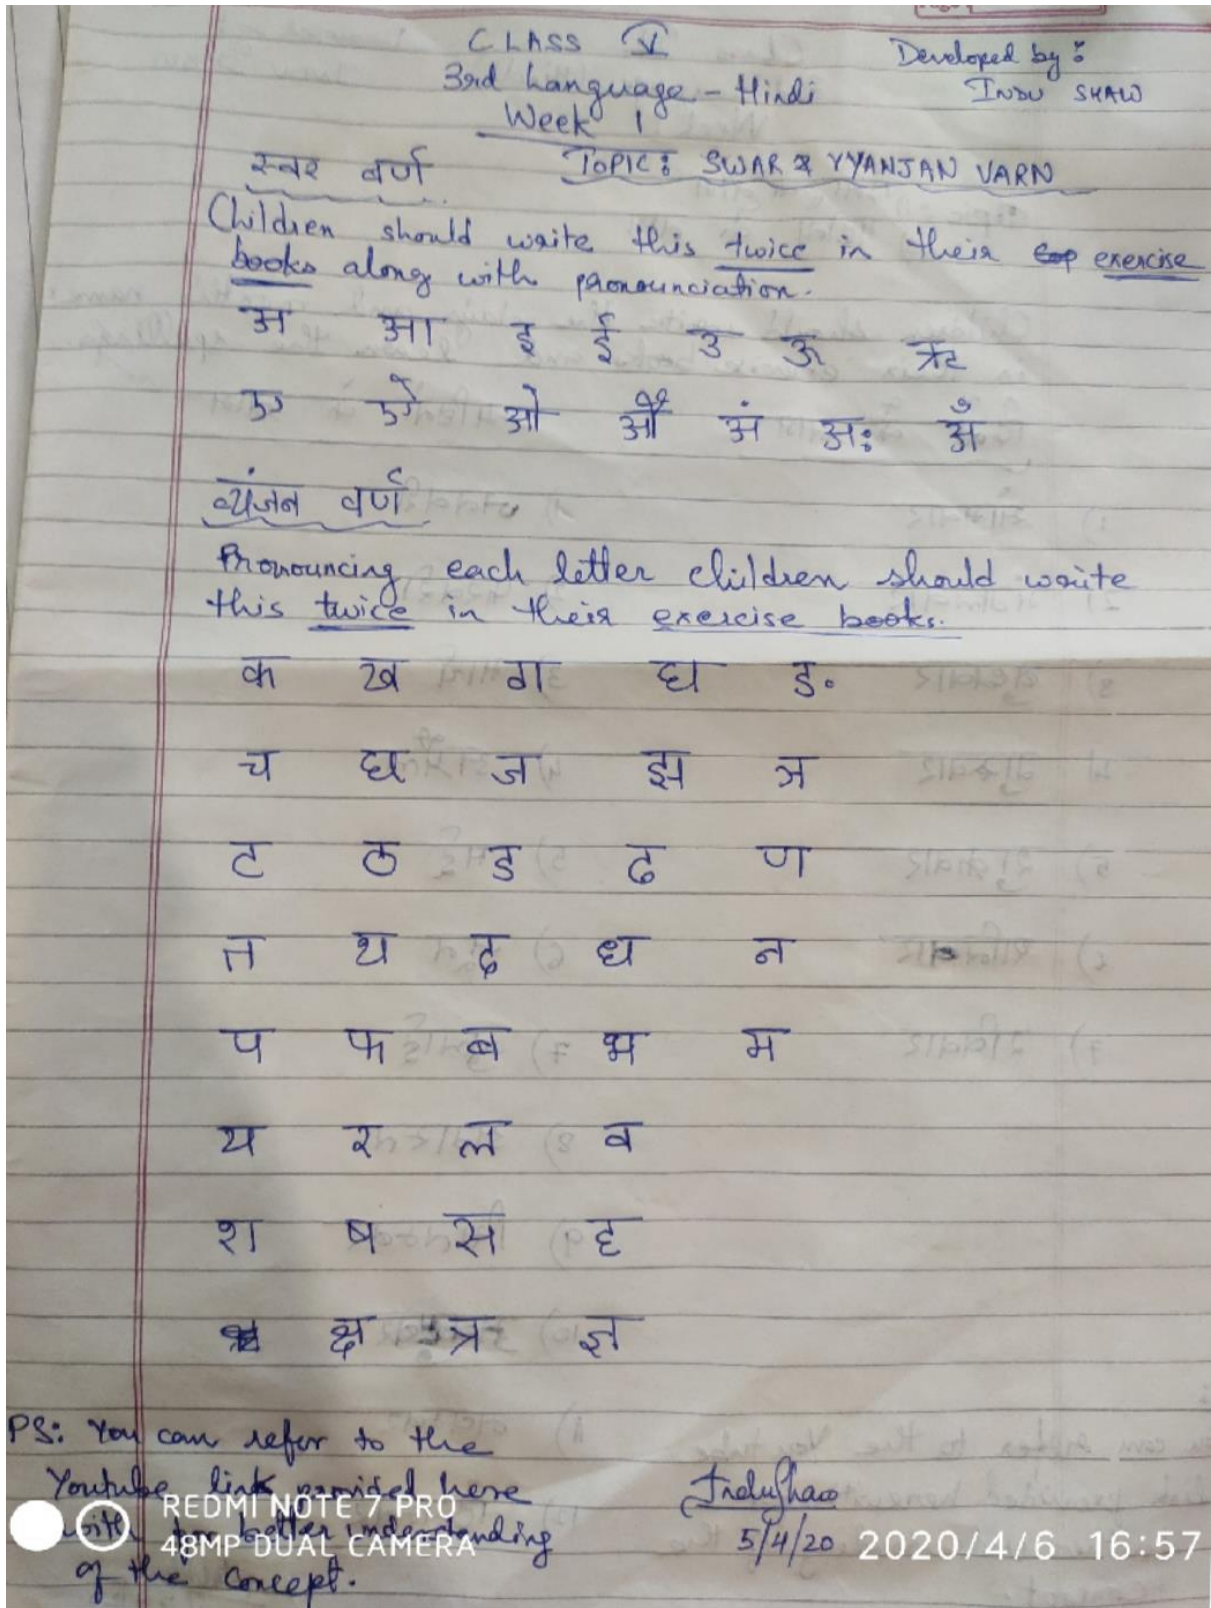 CLASS V
Developed by :
3rd Language - Hindi
INDU SHAW
Week 1
स्वर वर्ण TOPIC: SWAR & VYANJAN VARN
Children should write this twice in their exercise
books along with pronounciation.
अ आ इ ई उ ऊ ऋ
ए ऐ ओ औ अं अः अँ
व्यंजन वर्ण
Pronouncing each letter children should write
this twice in their exercise books.
क ख ग घ ड.
च छ ज झ ञ
ट ठ ड ढ ण
त थ द ध न
प फ ब भ म
य र ल व
श ष स ह
क्ष त्र ज्ञ
PS: You can refer to the
Youtube link provided here
with for better understanding
of the concept.
InduShaw
5/4/20
REDMI NOTE 7 PRO
48MP DUAL CAMERA
2020/4/6 16:57